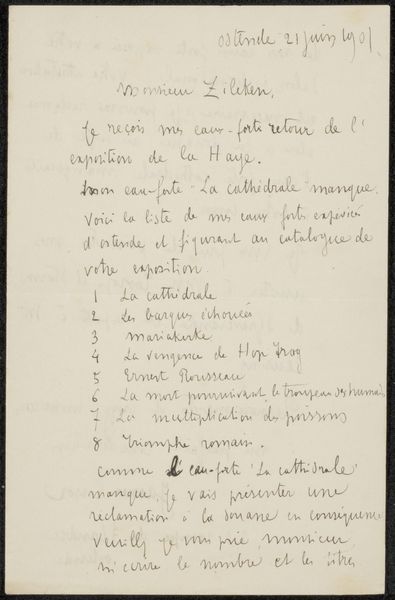 Ostende 21 juin 1901.
Monsieur Zilcken,
Je reçois mes eaux-fortes retour de l'
exposition de la Haye.
Mon eau-forte "La cathédrale" manque.
Voici la liste de mes eaux fortes expédiées
d'ostende et figurant au catalogue de
votre exposition.
1 La cathédrale
2 Les barques échouées
3 Mariakerke
4 La vengence de Hop Frog
5 Ernest Rousseau
6 La mort poursuivant le troupeau des humains
7 La multiplication des poissons
8 Triomphe romain.
Comme l'eau-forte "La cathédrale"
manque, je vais présenter une
réclamation à la douane en conséquence
Veuillez je vous prie, monsieur,
m'écrire le nombre et les titres